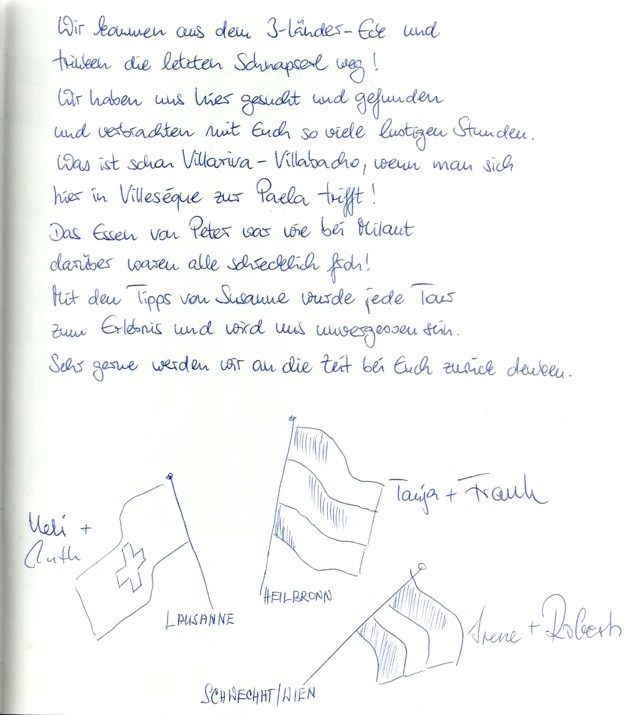 Wir kommen aus dem 3-Länder-Eck und
trinken die letzten Schnapserl weg!
Wir haben uns hier gesucht und gefunden
und verbrachten mit Euch so viele lustigen Stunden.
Was ist schon Villariva-Villabacho, wenn man sich
hier in Villesèque zur Paela trifft!
Das Essen von Peter war wie bei Milaut
darüber waren alle schrecklich froh!
Mit den Tipps von Susanne wurde jede Tour
zum Erlebnis und wird uns unvergessen sein.
Sehr gerne werden wir an die Zeit bei Euch zurück denken.
Ueli +
Ruth
LAUSANNE
HEILBRONN
Tanja + Frank
SCHWECHAT/WIEN
Irene + Robert